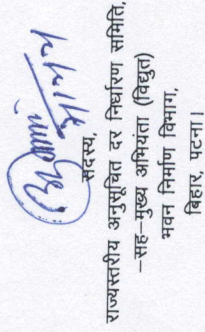 सदस्य,
राज्यस्तरीय अनुसूचित दर निर्धारण समिति,
–सह–मुख्य अभियंता (विद्युत)
भवन निर्माण विभाग,
बिहार, पटना।